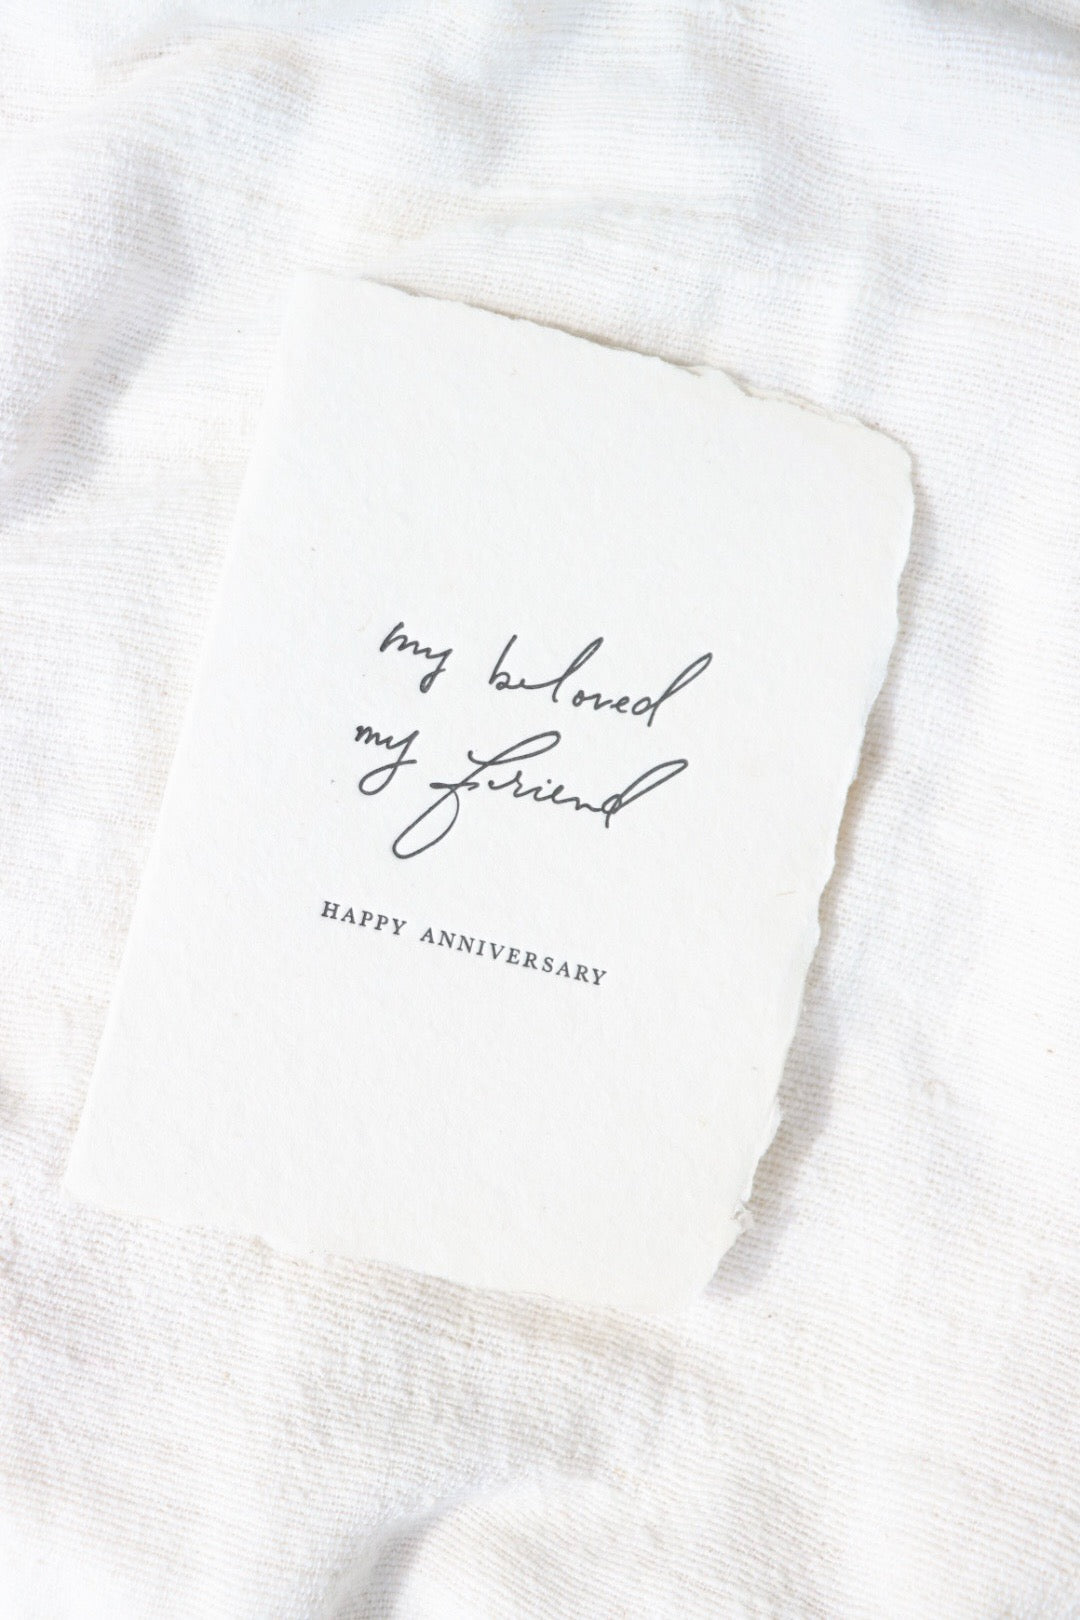 my beloved
my friend
HAPPY ANNIVERSARY